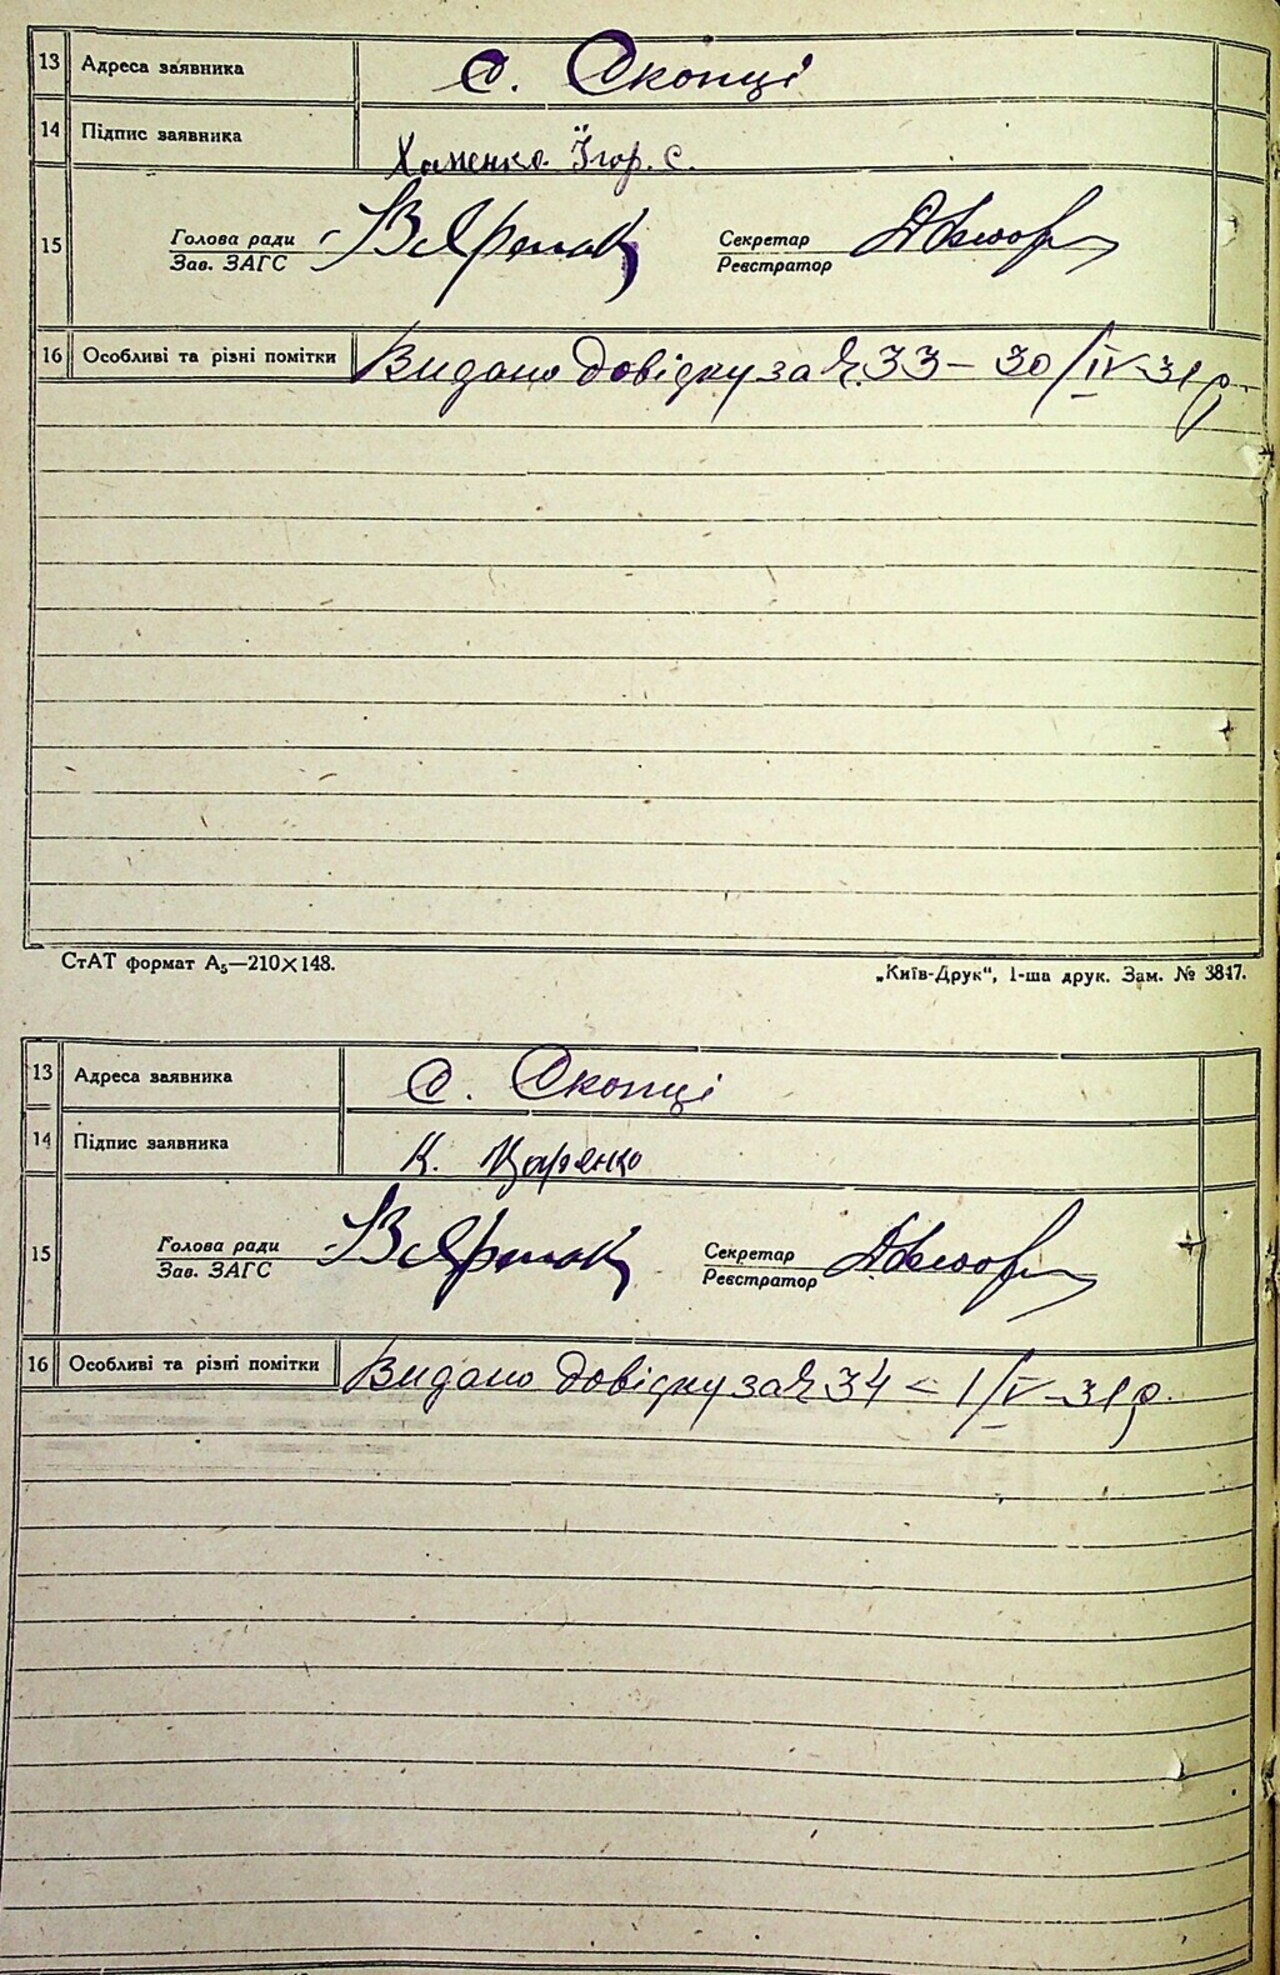 13 Адреса заявника с. Скопці
14 Підпис заявника Хоменко Ігор. С.
15 Голова ради Секретар
Зав. ЗАГС Реєстратор
16 Особливі та різні помітки Видано довідку за Ч. 33 – 30/IV–31 р.
СтАТ формат А₅—210×148. „Київ-Друк“, 1-ша друк. Зам. № 3847.
13 Адреса заявника с. Скопці
14 Підпис заявника К. Царенко
15 Голова ради Секретар
Зав. ЗАГС Реєстратор
16 Особливі та різні помітки Видано довідку за Ч 34 – 1/V–31 р.